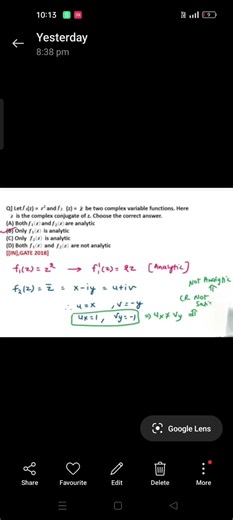 10:13
Yesterday
8:38 pm
Q] Let f₁(z) = z² and f₂ (z) = z̄ be two complex variable functions. Here
z̄ is the complex conjugate of z. Choose the correct answer.
(A) Both f₁(z) and f₂(z) are analytic
(B) Only f₁(z) is analytic
(C) Only f₂(z) is analytic
(D) Both f₁(z) and f₂(z) are not analytic
[IN], GATE 2018]
f₁(z) = z² → f₁'(z) = 2z [Analytic]
f₂(z) = z̄ = x-iy = u+iv
∴ u=x , v=-y
ux=1, vy=-1 ⇒ ux≠vy ⇒
CR Not
Satis
Not Analytic
Google Lens
Share
Favourite
Edit
Delete
More